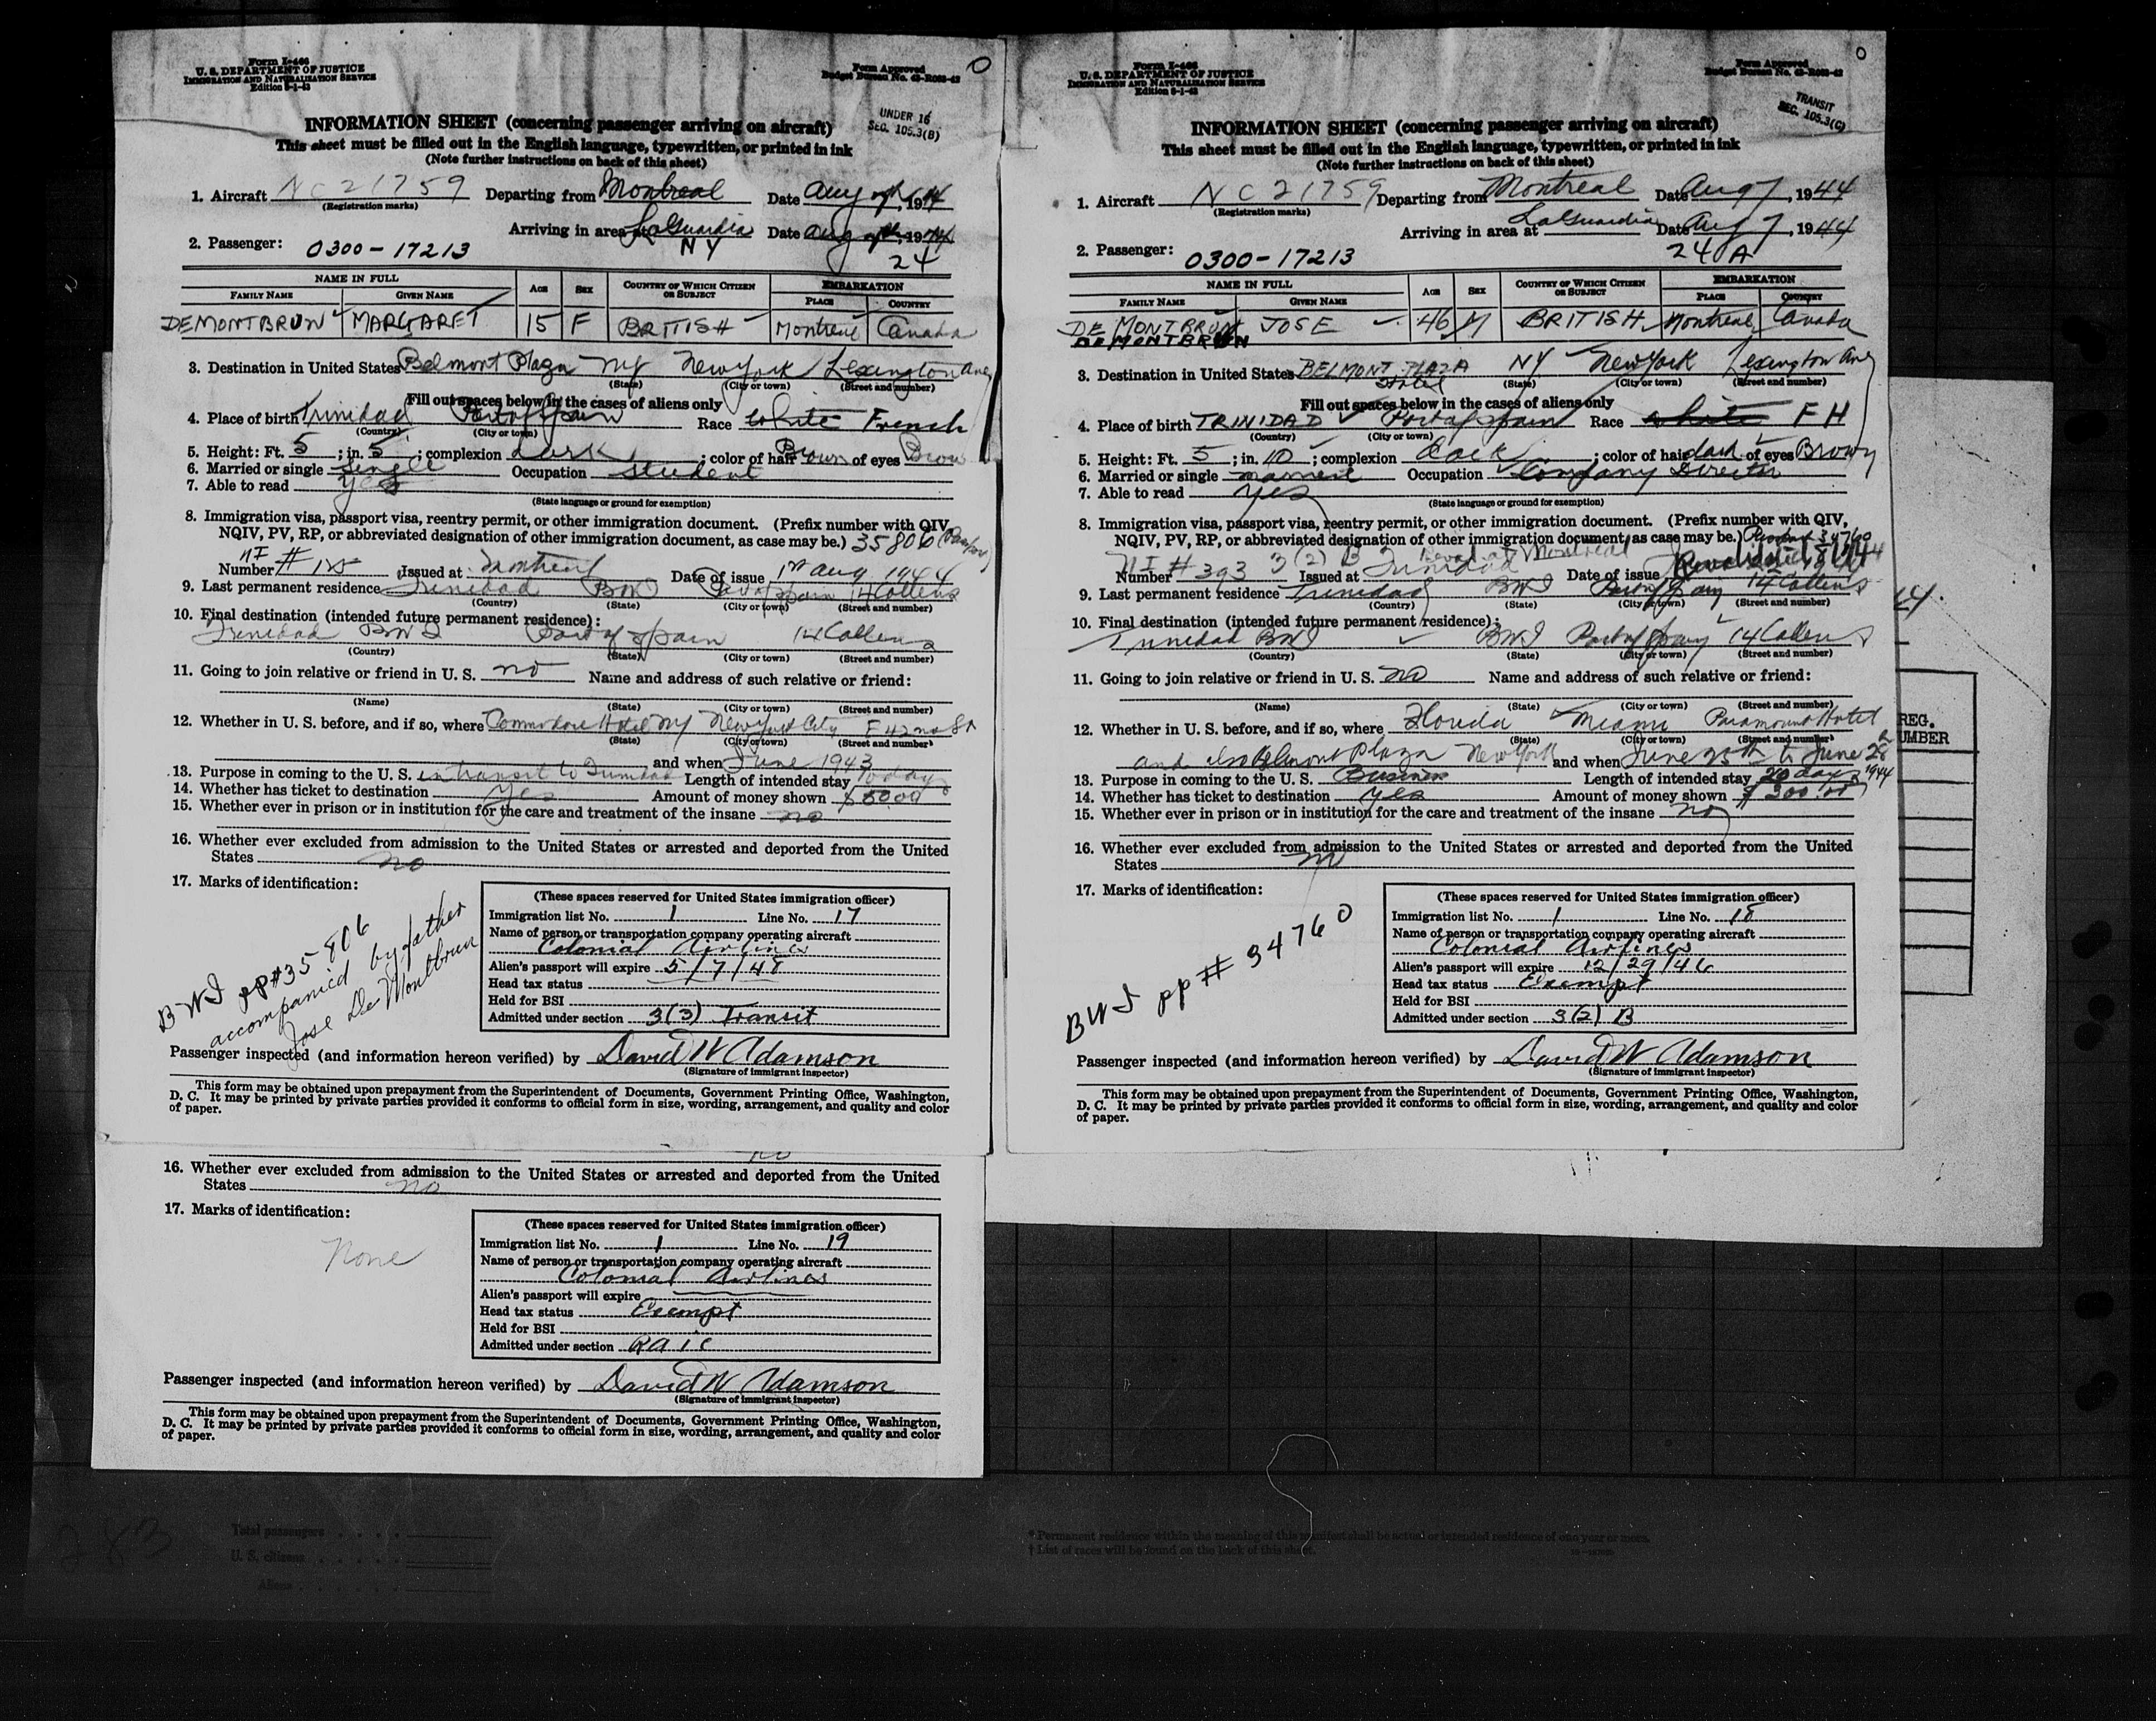 Form I-466
U. S. DEPARTMENT OF JUSTICE
IMMIGRATION AND NATURALIZATION SERVICE
Edition 5-1-43
Form Approved
Budget Bureau No. 43-R083-42
UNDER 16
SEC. 105.3(B)
INFORMATION SHEET (concerning passenger arriving on aircraft)
This sheet must be filled out in the English language, typewritten, or printed in ink
(Note further instructions on back of this sheet)
1. Aircraft NC21759 Departing from Montreal Date Aug 7th, 1944
(Registration marks)
Arriving in area at LaGuardia Date Aug 7th, 1944
NY
2. Passenger: 0300-17213 24
NAME IN FULL AGE SEX COUNTRY OF WHICH CITIZEN OR SUBJECT EMBARKATION
FAMILY NAME GIVEN NAME PLACE COUNTRY
DEMONTBRUN MARGARET 15 F BRITISH Montreal Canada
3. Destination in United States Belmont Plaza NY New York Lexington Ave
(State) (City or town) (Street and number)
Fill out spaces below in the cases of aliens only
4. Place of birth Trinidad Port of Spain Race White French
(Country) (City or town)
5. Height: Ft. 5; in. 5; complexion Dark; color of hair Brown of eyes Brown
6. Married or single Single Occupation Student
7. Able to read Yes
(State language or ground for exemption)
8. Immigration visa, passport visa, reentry permit, or other immigration document. (Prefix number with QIV,
NQIV, PV, RP, or abbreviated designation of other immigration document, as case may be.) 35806
Number Issued at Montreal Date of issue 1st Aug 1944
9. Last permanent residence Trinidad BWI Port of Spain 14 Collens
(Country) (State) (City or town) (Street and number)
10. Final destination (intended future permanent residence):
Trinidad BWI Port of Spain 14 Collens
(Country) (State) (City or town) (Street and number)
11. Going to join relative or friend in U. S. no Name and address of such relative or friend:
(Name) (State) (City or town) (Street and number)
12. Whether in U. S. before, and if so, where Commodore Hotel NY New York City E 42nd St
(State) (City or town) (Street and number)
and when June 1943
13. Purpose in coming to the U. S. in transit to Trinidad Length of intended stay days
14. Whether has ticket to destination yes Amount of money shown
15. Whether ever in prison or in institution for the care and treatment of the insane no
16. Whether ever excluded from admission to the United States or arrested and deported from the United
States no
17. Marks of identification:
BWI pp#35806
accompanied by father
Jose De Montbrun
(These spaces reserved for United States immigration officer)
Immigration list No. 1 Line No. 17
Name of person or transportation company operating aircraft
Colonial Airlines
Alien's passport will expire 5/7/48
Head tax status
Held for BSI
Admitted under section 3(3) Transit
Passenger inspected (and information hereon verified) by David W Adamson
(Signature of immigrant inspector)
This form may be obtained upon prepayment from the Superintendent of Documents, Government Printing Office, Washington,
D. C. It may be printed by private parties provided it conforms to official form in size, wording, arrangement, and quality and color
of paper.
no
16. Whether ever excluded from admission to the United States or arrested and deported from the United
States no
17. Marks of identification:
None
(These spaces reserved for United States immigration officer)
Immigration list No. 1 Line No. 19
Name of person or transportation company operating aircraft
Colonial Airlines
Alien's passport will expire
Head tax status Exempt
Held for BSI
Admitted under section
Passenger inspected (and information hereon verified) by David W Adamson
(Signature of immigrant inspector)
This form may be obtained upon prepayment from the Superintendent of Documents, Government Printing Office, Washington,
D. C. It may be printed by private parties provided it conforms to official form in size, wording, arrangement, and quality and color
of paper.
283
Total passengers
U. S. citizens
Aliens
Form I-466
U. S. DEPARTMENT OF JUSTICE
IMMIGRATION AND NATURALIZATION SERVICE
Edition 5-1-43
Form Approved
Budget Bureau No. 43-R083-42
TRANSIT
SEC. 105.3(C)
INFORMATION SHEET (concerning passenger arriving on aircraft)
This sheet must be filled out in the English language, typewritten, or printed in ink
(Note further instructions on back of this sheet)
1. Aircraft NC21759 Departing from Montreal Date Aug 7, 1944
(Registration marks)
Arriving in area at LaGuardia Date Aug 7, 1944
2. Passenger: 0300-17213 24 A
NAME IN FULL AGE SEX COUNTRY OF WHICH CITIZEN OR SUBJECT EMBARKATION
FAMILY NAME GIVEN NAME PLACE COUNTRY
DE MONTBRUN JOSE 46 M BRITISH Montreal Canada
DE MONTBRUN
3. Destination in United States BELMONT PLAZA Hotel NY New York Lexington Ave
(State) (City or town) (Street and number)
Fill out spaces below in the cases of aliens only
4. Place of birth TRINIDAD Port of Spain Race White FH
(Country) (City or town)
5. Height: Ft. 5; in. 10; complexion dark; color of hair dark of eyes Brown
6. Married or single married Occupation Company Director
7. Able to read yes
(State language or ground for exemption)
8. Immigration visa, passport visa, reentry permit, or other immigration document. (Prefix number with QIV,
NQIV, PV, RP, or abbreviated designation of other immigration document, as case may be.) Passport 34760
Number # 393 3(2) B Issued at Trinidad Montreal Date of issue Revalidated
9. Last permanent residence Trinidad BWI Port of Spain 14 Collens
(Country) (State) (City or town) (Street and number)
10. Final destination (intended future permanent residence):
Trinidad BWI BWI Port of Spain 14 Collens
(Country) (State) (City or town) (Street and number)
11. Going to join relative or friend in U. S. no Name and address of such relative or friend:
(Name) (State) (City or town) (Street and number)
12. Whether in U. S. before, and if so, where Florida Miami Paramount Hotel
(State) (City or town) (Street and number)
and also Belmont Plaza New York and when June 25th to June 28 1944
13. Purpose in coming to the U. S. Business Length of intended stay 20 days
14. Whether has ticket to destination yes Amount of money shown $ 300.00
15. Whether ever in prison or in institution for the care and treatment of the insane no
16. Whether ever excluded from admission to the United States or arrested and deported from the United
States no
17. Marks of identification:
BWI pp # 34760
(These spaces reserved for United States immigration officer)
Immigration list No. 1 Line No. 18
Name of person or transportation company operating aircraft
Colonial Airlines
Alien's passport will expire 12/29/46
Head tax status Exempt
Held for BSI
Admitted under section 3(2) B
Passenger inspected (and information hereon verified) by David W Adamson
(Signature of immigrant inspector)
This form may be obtained upon prepayment from the Superintendent of Documents, Government Printing Office, Washington,
D. C. It may be printed by private parties provided it conforms to official form in size, wording, arrangement, and quality and color
of paper.
REG.
UMBER
* Permanent residence within the meaning of this manifest shall be actual or intended residence of one year or more.
† List of races will be found on the back of this sheet.